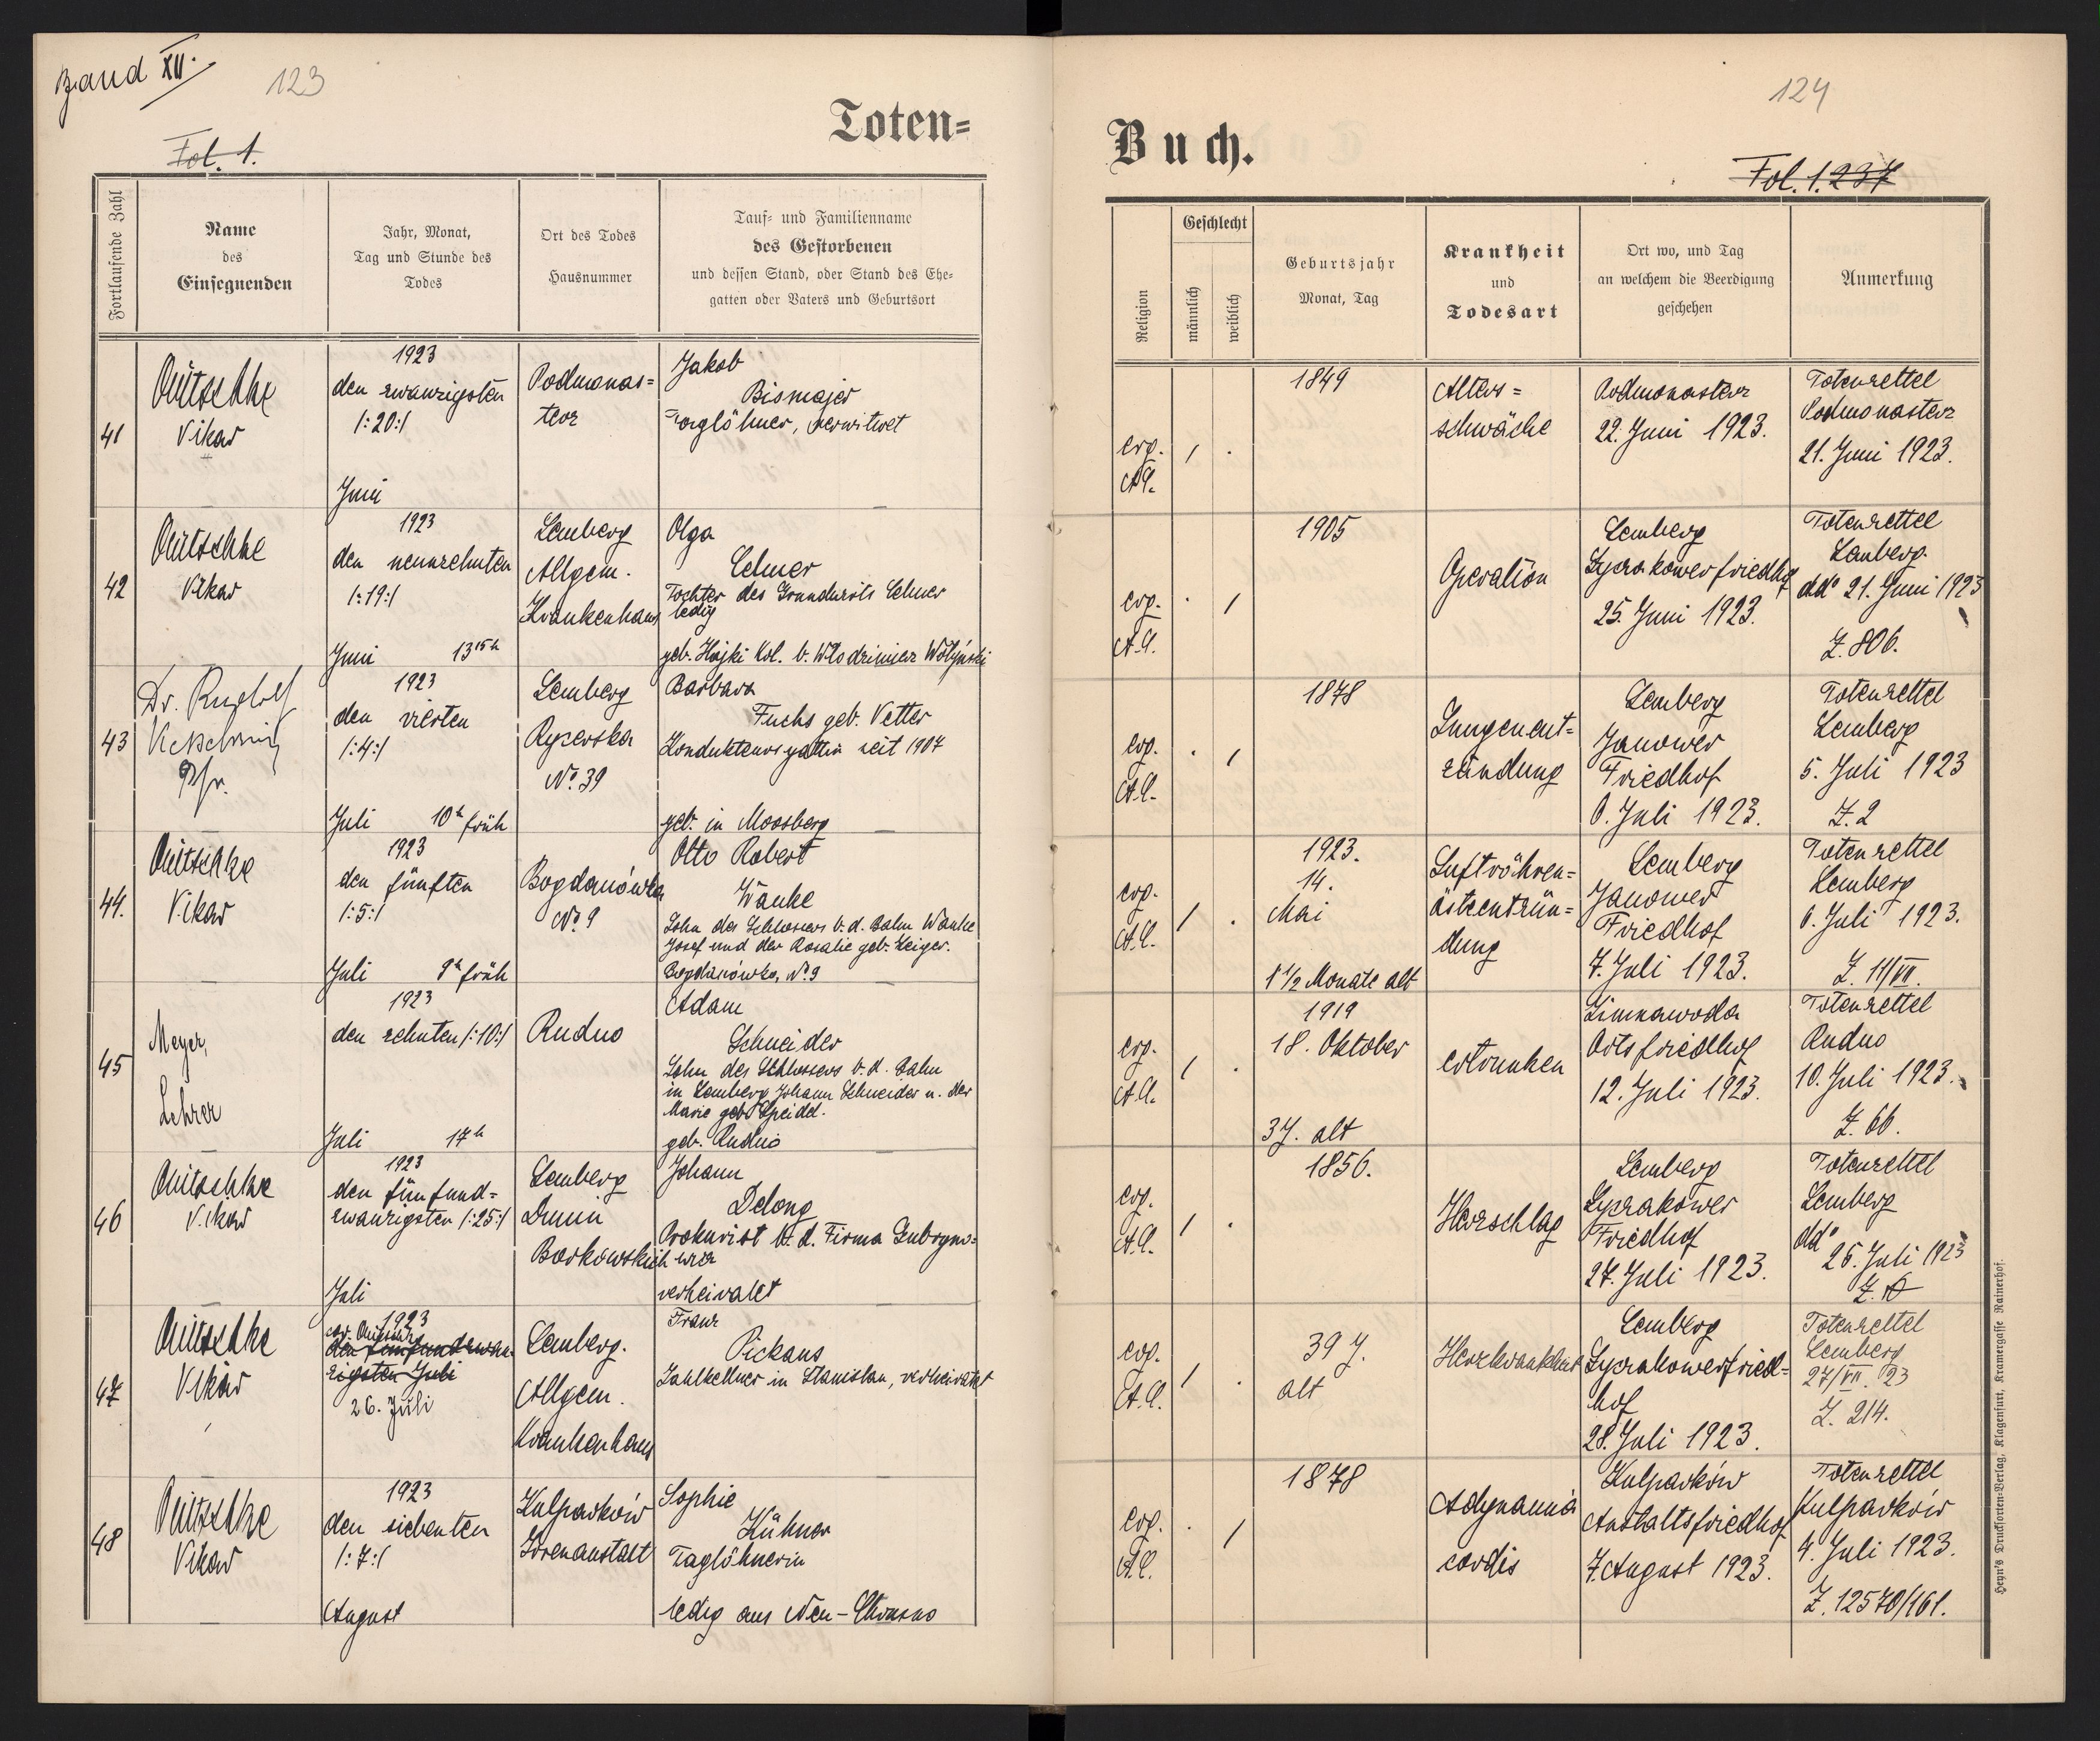 Band XII.
123
Fol. 1.
Toten=
Fortlaufende Zahl
Name
des
Einsegnenden
Jahr, Monat,
Tag und Stunde des
Todes
Ort des Todes
Hausnummer
Tauf= und Familienname
des Gestorbenen
und dessen Stand, oder Stand des Ehe=
gatten oder Vaters und Geburtsort
41
Vikar
1923
den zwanzigsten
/:20:/
Juni
Podmonas=
terz
Jakob
Bismajer
Taglöhner, verwitwet
42
Vikar
1923
den neunzehnten
/:19:/
Juni 13 15 h
Lemberg
Allgem.
Krankenhaus
Olga
Lehner
Tochter des Grundwirts Lehner
ledig
geb. Hajki Kol. b. Włodzimierz Wołyński
43
Dr. Rudolf
Kesselring
Pfr.
1923
den vierten
/:4:/
Juli 10 h früh
Lemberg
No. 39
Barbara
Fuchs geb. Vetter
Kondukteursgattin seit 1907
geb. in Moosberg
44.
Vikar
1923
den fünften
/:5:/
Juli 9 h früh
Bogdanówka
No. 9
Otto Robert
Wanke
Sohn des Schlossers b. d. Bahn Wanke
Josef und der Rosalie geb. Geiger.
Bogdanówka, No 9
45
Meyer,
Lehrer
1923
den zehnten /:10:/
Juli 17 h
Rudno
Adam
Schneider
Sohn des Schlossers b. d. Bahn
in Lemberg Johann Schneider u. der
Marie geb. Speidel.
geb. Rudno
46
Vikar
1923
den fünfund=
zwanzigsten /:25:/
Juli
Lemberg
Dunin
Borkowskich
Johann
Delong
Prokurist b. d. Firma Gubryno=
wicz
verheiratet
47
Vikar
1923
den fünfundzwan
zigsten Juli
26. Juli
Lemberg.
Allgem.
Krankenhaus
Franz
Pickaus
Zahlkellner in Stanislau, verheiratet
48
Vikar
1923
den siebenten
/:7:/
August
Kulparków
Irrenanstalt
Sophie
Kühner
Taglöhnerin
ledig aus Neu-Chrusno
124
Buch.
Fol. 1. 237
Religion
Geschlecht
männlich
weiblich
Geburtsjahr
Monat, Tag
Krankheit
und
Todesart
Ort wo, und Tag
an welchem die Beerdigung
geschehen
Anmerkung
evg.
A.C.
/ .
1849
Alters=
schwäche
Podmonasterz
22. Juni 1923.
Totenzettel
Podmonasterz
21. Juni 1923.
evg.
A.C.
. /
1905
Operation
Lemberg
Lyczakowerfriedhof
25. Juni 1923.
Totenzettel
Lemberg
ddo 21. Juni 1923
Z. 806.
evg.
A.C.
. /
1878
Lungenent=
zündung
Lemberg
Janower
Friedhof
6. Juli 1923.
Totenzettel
Lemberg
5. Juli 1923
Z. 2
evg.
A.C.
/ .
1923.
14.
Mai
1 1/2 Monate alt
Luftröhren=
ästeentzün=
dung
Lemberg
Janower
Friedhof
7. Juli 1923.
Totenzettel
Lemberg
6. Juli 1923.
Z. 11/VII.
evg.
A.C.
/ .
1919
18. Oktober
3 J. alt
ertrunken
Zimnawoda
Ortsfriedhof
12. Juli 1923.
Totenzettel
Rudno
10. Juli 1923.
Z. 66.
evg.
A.C.
/ .
1856.
Herzschlag
Lemberg
Lyczakower
Friedhof
27. Juli 1923.
Totenzettel
Lemberg
ddo
26. Juli 1923
evg.
A.C.
/ .
39 J.
alt
Herzkrankheit
Lemberg
Lyczakowerfried=
hof
28. Juli 1923.
Totenzettel
Lemberg
27/VII. 23
Z. 214.
evg.
A.C.
. /
1878
Adynamia
cordis
Kulparków
Anstaltsfriedhof
7. August 1923.
Totenzettel
Kulparków
4. Juli 1923.
Z. 12570/161.
Heyn's Drucksorten-Verlag, Klagenfurt, Kramergasse Rainerhof.